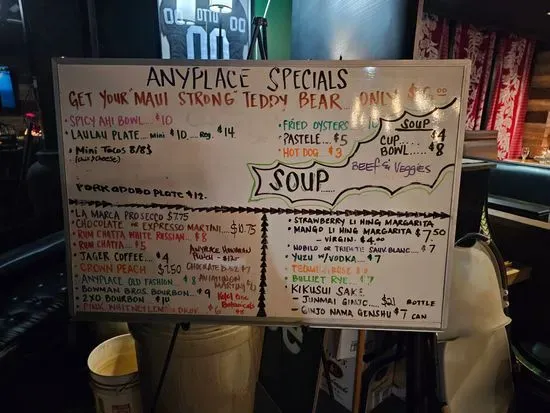 OTTO
00
ANYPLACE SPECIALS
GET YOUR "MAUI STRONG" TEDDY BEAR... ONLY
• SPICY AHI BOWL... $10
• LAULAU PLATE... Mini $10... Reg $14
• Mini Tacos 8/8$
PORK ADOBO PLATE $12.
• FRIED OYSTERS 10
• PASTELE... $5
• HOT DOG... $3
SOUP
CUP... $4
BOWL... $8
SOUP....
BEEF & Veggies
• LA MARCA PROSECCO $7.75
• CHOCOLATE OR EXPRESSO MARTINI... $10.75
• RUM CHATTA WHITE RUSSIAN... $8
• RUM CHATTA... $5
• JAGER COFFEE... $4
• CROWN PEACH $7.50
• ANYPLACE OLD FASHION... $8
• BOWMAN BROS. BOURBON... $9
• 2XO BOURBON... $10
• PINK WHITNEY LEMON DROP $6
ANYPLACE HAWAIIAN
CHOCOLATE $7
MARTINI
Ketel One
Botanicals
$8
• STRAWBERRY LI HING MARGARITA
• MANGO LI HING MARGARITA $7.50
- VIRGIN.. $4.00
• NOBILO OR TRIENTE SAUV. BLANC.. $7
• YUZU W/ VODKA... $7
• BULLIET RYE.. $7
KIKUSUI SAKE
- JUNMAI GINJO... $21 BOTTLE
- GINJO NAMA GENSHU $7 CAN